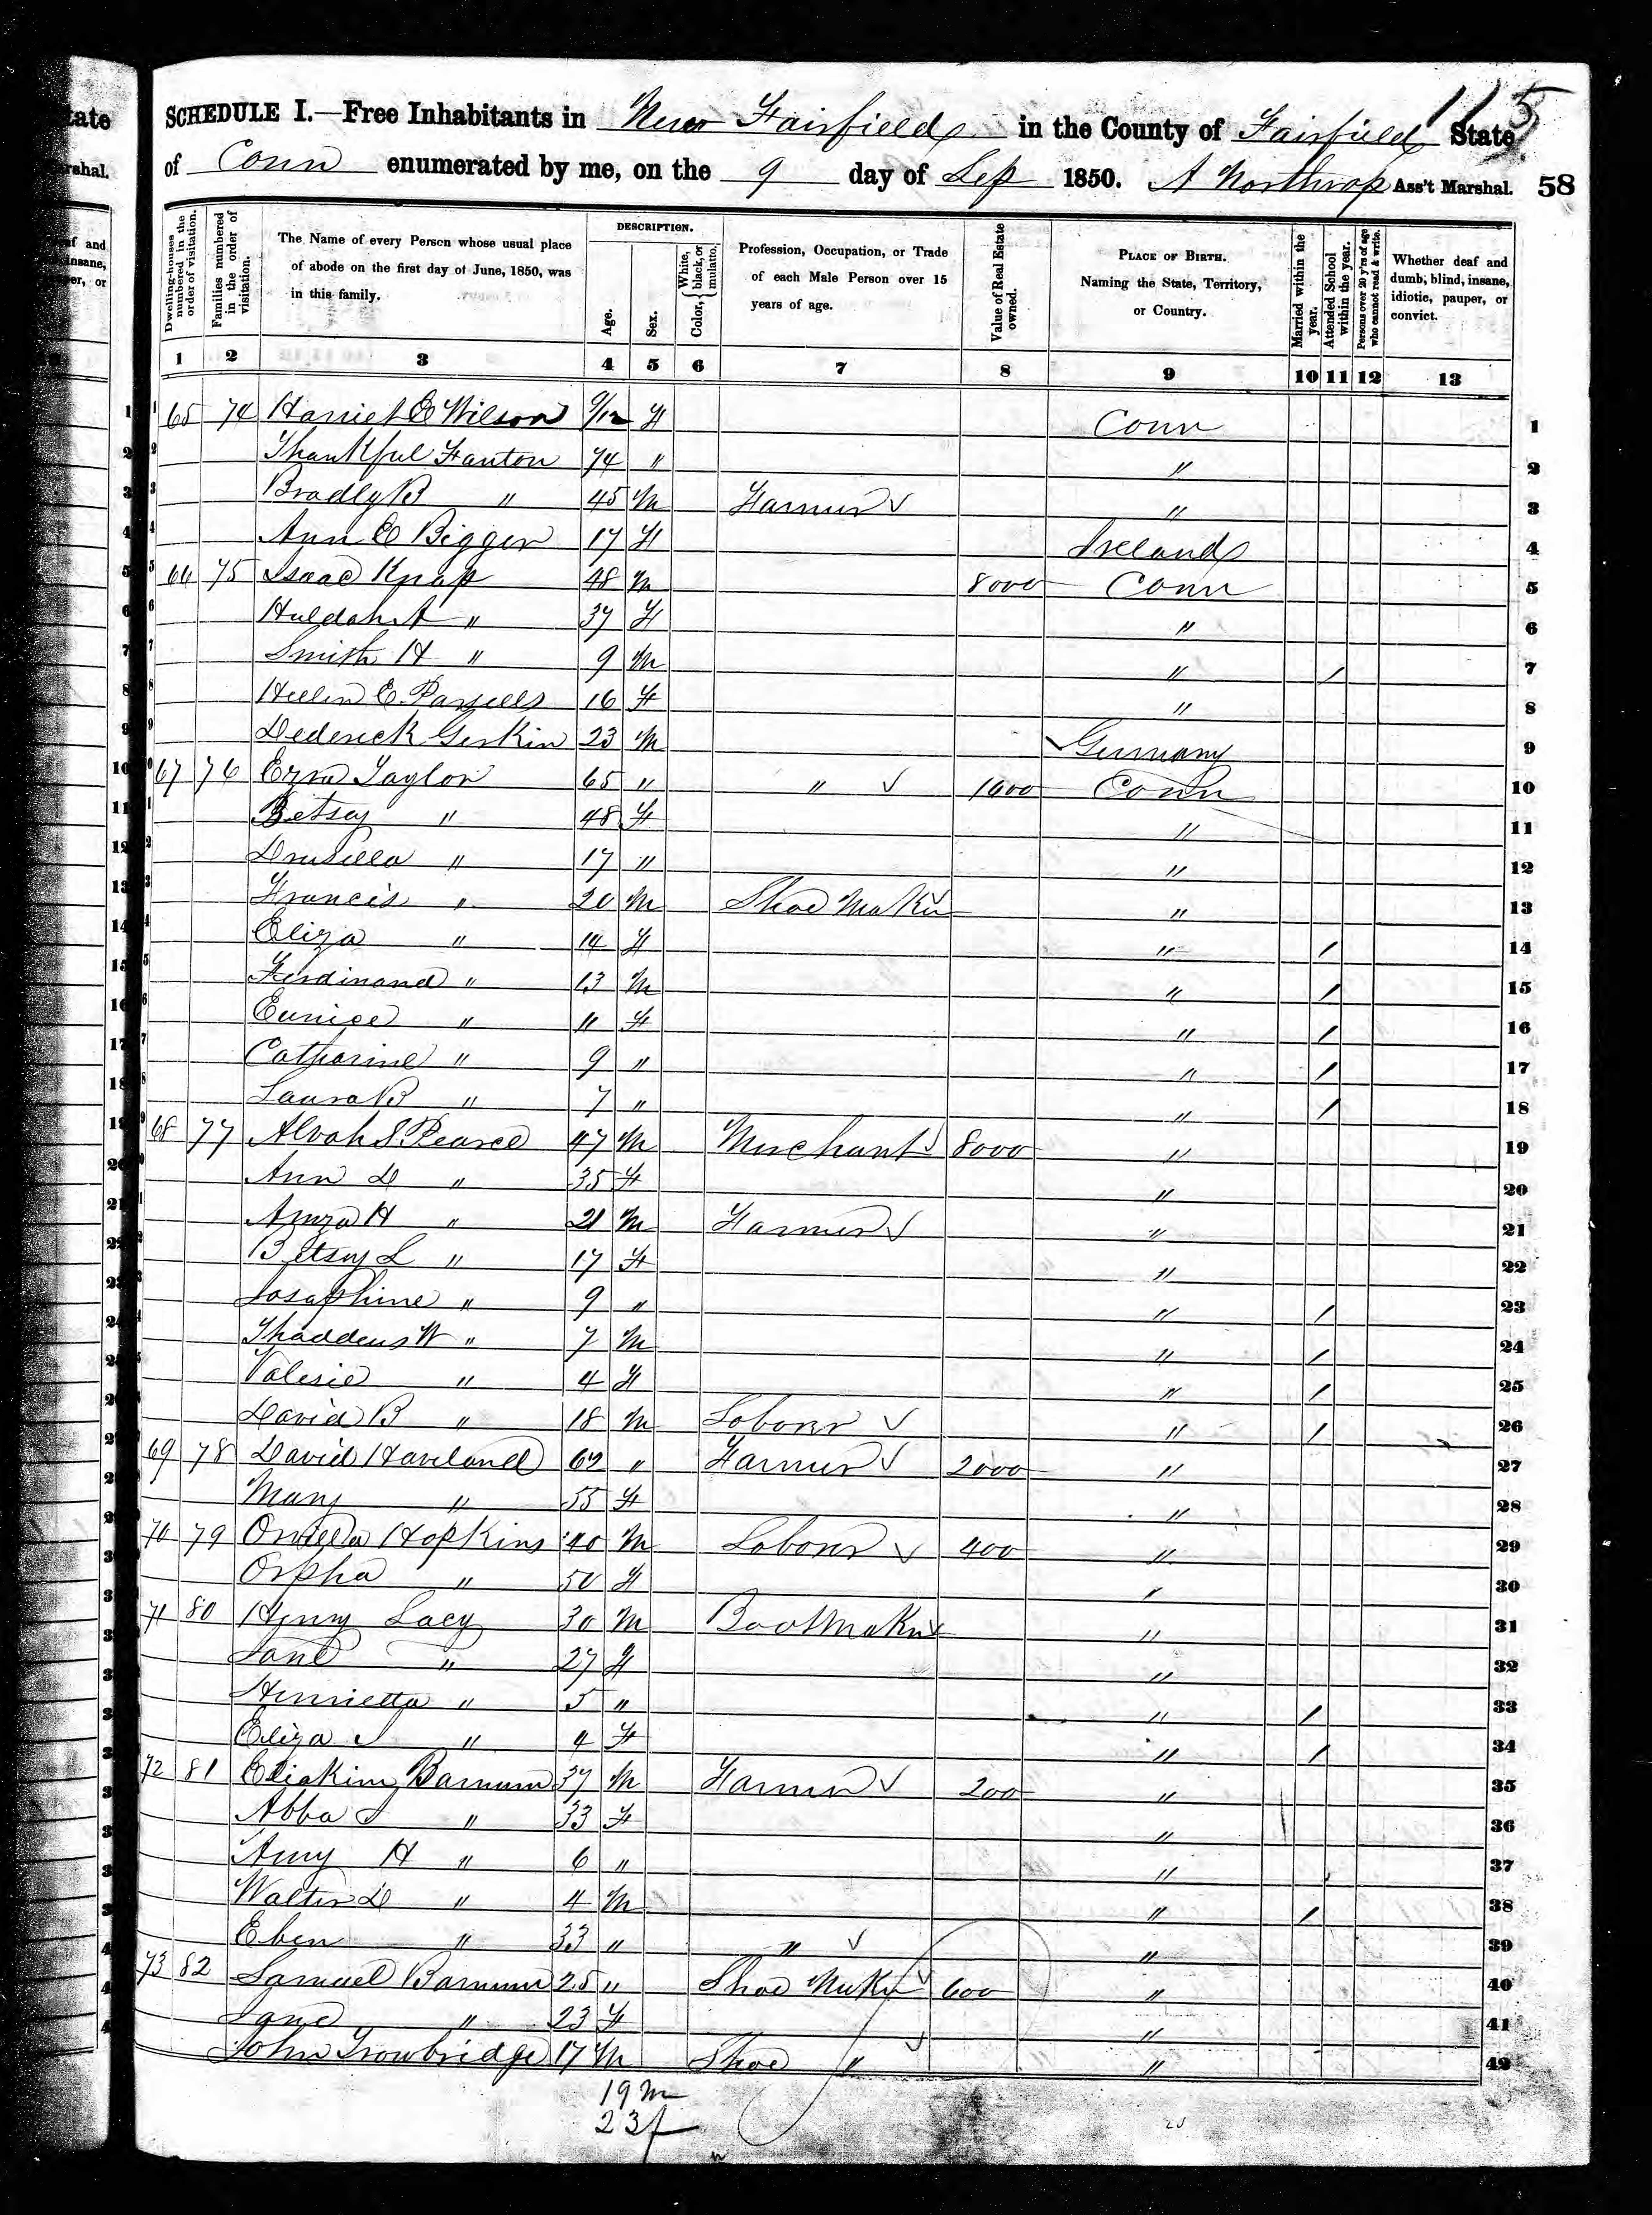 115
SCHEDULE I.—Free Inhabitants in New Fairfield in the County of Fairfield State
of Conn enumerated by me, on the 9 day of Sep 1850. A Northrop Ass't Marshal. 58
Dwelling-houses numbered in the order of visitation.
Families numbered in the order of visitation.
The Name of every Person whose usual place of abode on the first day of June, 1850, was in this family.
DESCRIPTION.
Age.
Sex.
Color, { White, black, or mulatto.
Profession, Occupation, or Trade of each Male Person over 15 years of age.
Value of Real Estate owned.
PLACE OF BIRTH. Naming the State, Territory, or Country.
Married within the year.
Attended School within the year.
Persons over 20 y'rs of age who cannot read & write.
Whether deaf and dumb, blind, insane, idiotic, pauper, or convict.
1 2 3 4 5 6 7 8 9 10 11 12 13
1 65 74 Harriet E Wilson 9/12 F Conn 1
2 Thankful Fanton 74 " " 2
3 Bradly B " 45 M Farmer ✓ " 3
4 Ann E Bigger 17 F Ireland 4
5 66 75 Isaac Knap 48 M 8000 Conn 5
6 Huldah A " 37 F " 6
7 Smith H " 9 M " / 7
8 Hellen E 16 F " 8
9 Dederick Gerkin 23 M Germany 9
10 67 76 Ezra Taylor 65 " " ✓ 1000 Conn 10
11 Betsey " 48 F " 11
12 Drusilla " 17 " " 12
13 Francis " 20 M Shoe Maker " 13
14 Eliza " 14 F " / 14
15 Ferdinand " 13 M " / 15
16 Eunice " 11 F " / 16
17 Catharine " 9 " " / 17
18 Laura B " 7 " " / 18
19 68 77 Alvah S Pearce 47 M Merchant ✓ 8000 " 19
20 Ann D " 35 F " 20
21 Amza H " 21 M Farmer ✓ " 21
22 Betsey L " 17 F " 22
23 Josaphine " 9 " " / 23
24 Thaddeus W " 7 M " / 24
25 Valerie " 4 F " / 25
26 David B " 18 M Laborer ✓ " / 26
27 69 78 David Haveland 62 " Farmer ✓ 2000 " 27
28 Mary " 55 F " 28
29 70 79 Hopkins 40 M Laborer ✓ 400 " 29
30 Orpha " 50 F " 30
31 71 80 Henry Lacy 30 M Bootmaker ✓ " 31
32 Jane " 27 F " 32
33 Henrietta " 5 " " / 33
34 Eliza J " 4 F " / 34
35 72 81 Eliakim Barnum 37 M Farmer ✓ 200 " 35
36 Abba J " 33 F " 36
37 Amy H " 6 " " 37
38 Walter D " 4 M " / 38
39 Eben " 33 " " ✓ " 39
40 73 82 Samuel Barnum 25 " Shoe Maker ✓ 600 " 40
41 Jane " 23 F " 41
42 John Trowbridge 17 M Shoe " ✓ " 42
19 m
23 f